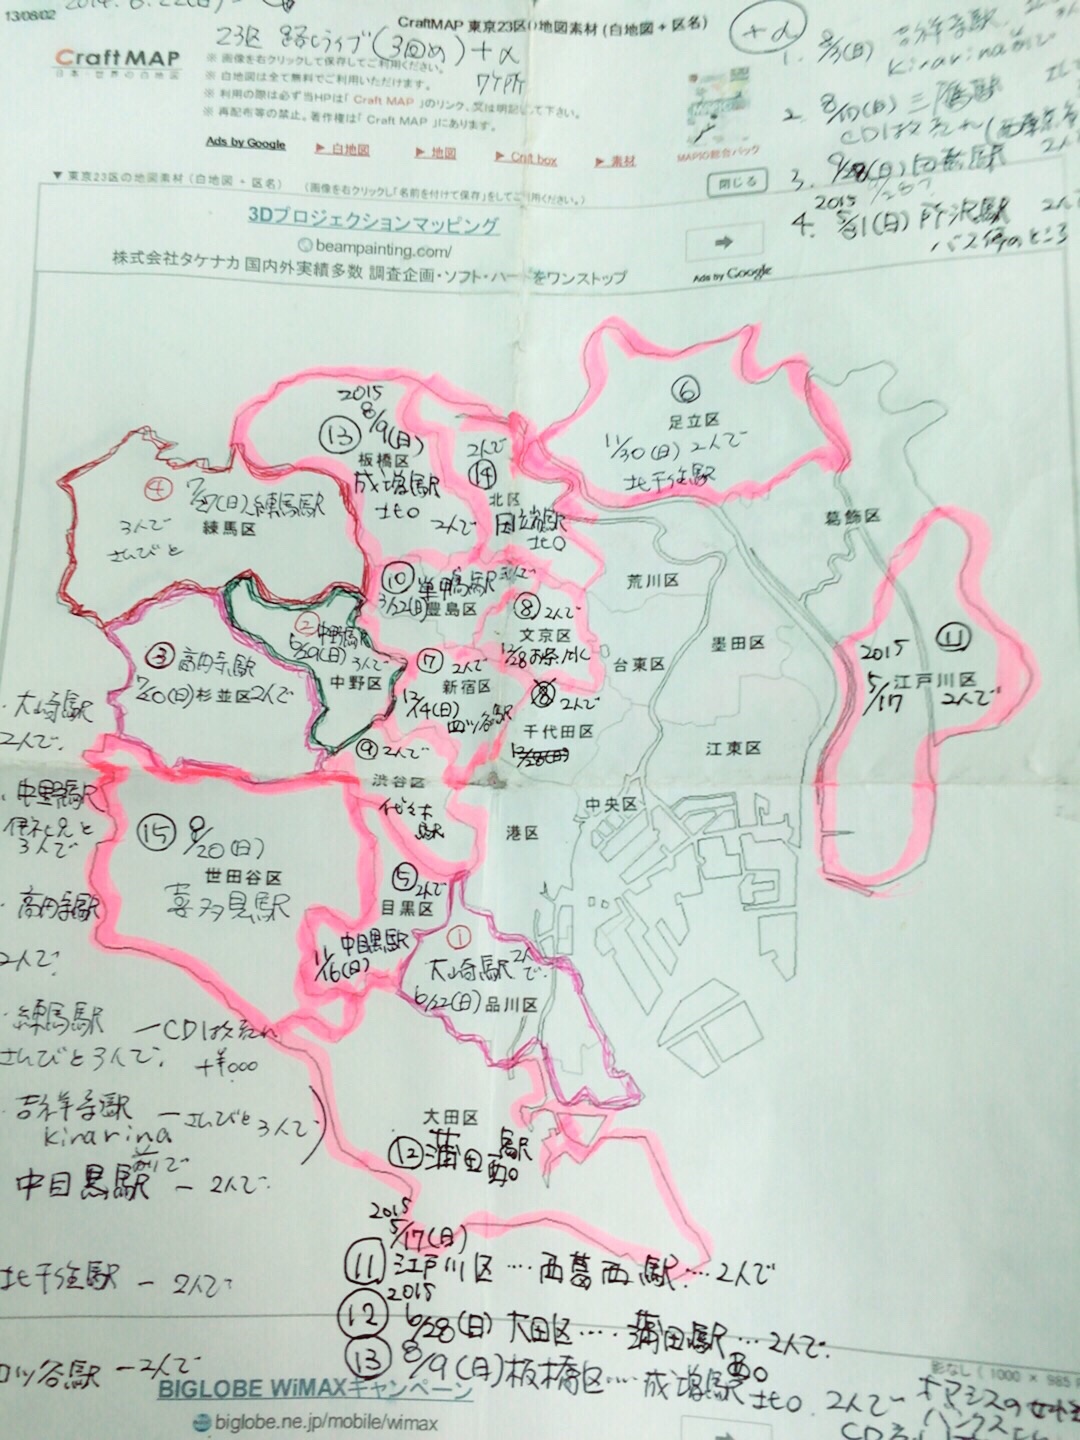 13/08/02
2014. 6.22(日)~
CraftMAP 東京23区の地図素材 (白地図 + 区名)
CraftMAP
日本・世界の白地図
23区 路上ライブ(3回め) + α
※ 画像を右クリックして保存してご利用ください。
※ 白地図は全て無料でご利用いただけます。
※ 利用の際は必ず当HPは「 Craft MAP 」のリンク、又は明記して下さい。
※ 再配布等の禁止。著作権は「 Craft MAP 」にあります。
Ads by Google
▶ 白地図
▶ 地図
▶ Craft box
▶ 素材
MAPIO総合パック
+α
1. 8/3(日) 吉祥寺駅
kirarina前で
2. 8/10(日) 三鷹駅
3.
2015
4. 5/31(日) 所沢駅 2人で
バス停のところ
▼ 東京23区の地図素材 (白地図 + 区名) (画像を右クリックし「名前を付けて保存」をしてご利用ください。)
閉じる
3Dプロジェクションマッピング
beampainting.com/
株式会社タケナカ 国内外実績多数 調査企画・ソフト・ハードをワンストップ
Ads by Google
⑥
足立区
11/30(日) 2人で
北千住駅
2015
8/9(日)
⑬
板橋区
成増駅
北口
2人で
2人で
⑭
北区
田端駅
北口
④ 7/27(日) 練馬駅
3人で
練馬区
さんびと
葛飾区
荒川区
⑩ 巣鴨駅
3/22(日) 豊島区
⑧ 2人で
文京区
12/28 お茶ノ水
② 中野駅
6/29(日) 3人で
中野区
③ 高円寺駅
7/20(日) 杉並区 2人で
⑦ 2人で
新宿区
12/14(日) 四ッ谷駅
台東区
墨田区
⑧ 2人で
千代田区
12/28(日)
江東区
2015
⑪
5/17
江戸川区
2人で
⑨ 2人で
渋谷区
代々木駅
中央区
港区
⑮ 9/20(日)
世田谷区
喜多見駅
⑤ 2人で
目黒区
中目黒駅
11/16(日)
①
大崎駅 2人で
6/22(日) 品川区
大田区
⑫ 蒲田駅
西口
・大崎駅
2人で
・中野駅
3人で
・高円寺駅
2人で
・練馬駅 ー CDは次売れ
さんびと 3人で
・吉祥寺駅 ー さんびと 3人で
kirarina
前で
中目黒駅 ー 2人で
北千住駅 ー 2人で
四ッ谷駅 ー 2人で
2015
5/17(日)
⑪ 江戸川区 … 西葛西駅 … 2人で
2015
⑫ 6/28(日) 大田区 … 蒲田駅 … 2人で
西口
⑬ 8/9(日) 板橋区 … 成増駅 北口 2人で
影なし ( 1000 × 985
BIGLOBE WiMAXキャンペーン
biglobe.ne.jp/mobile/wimax